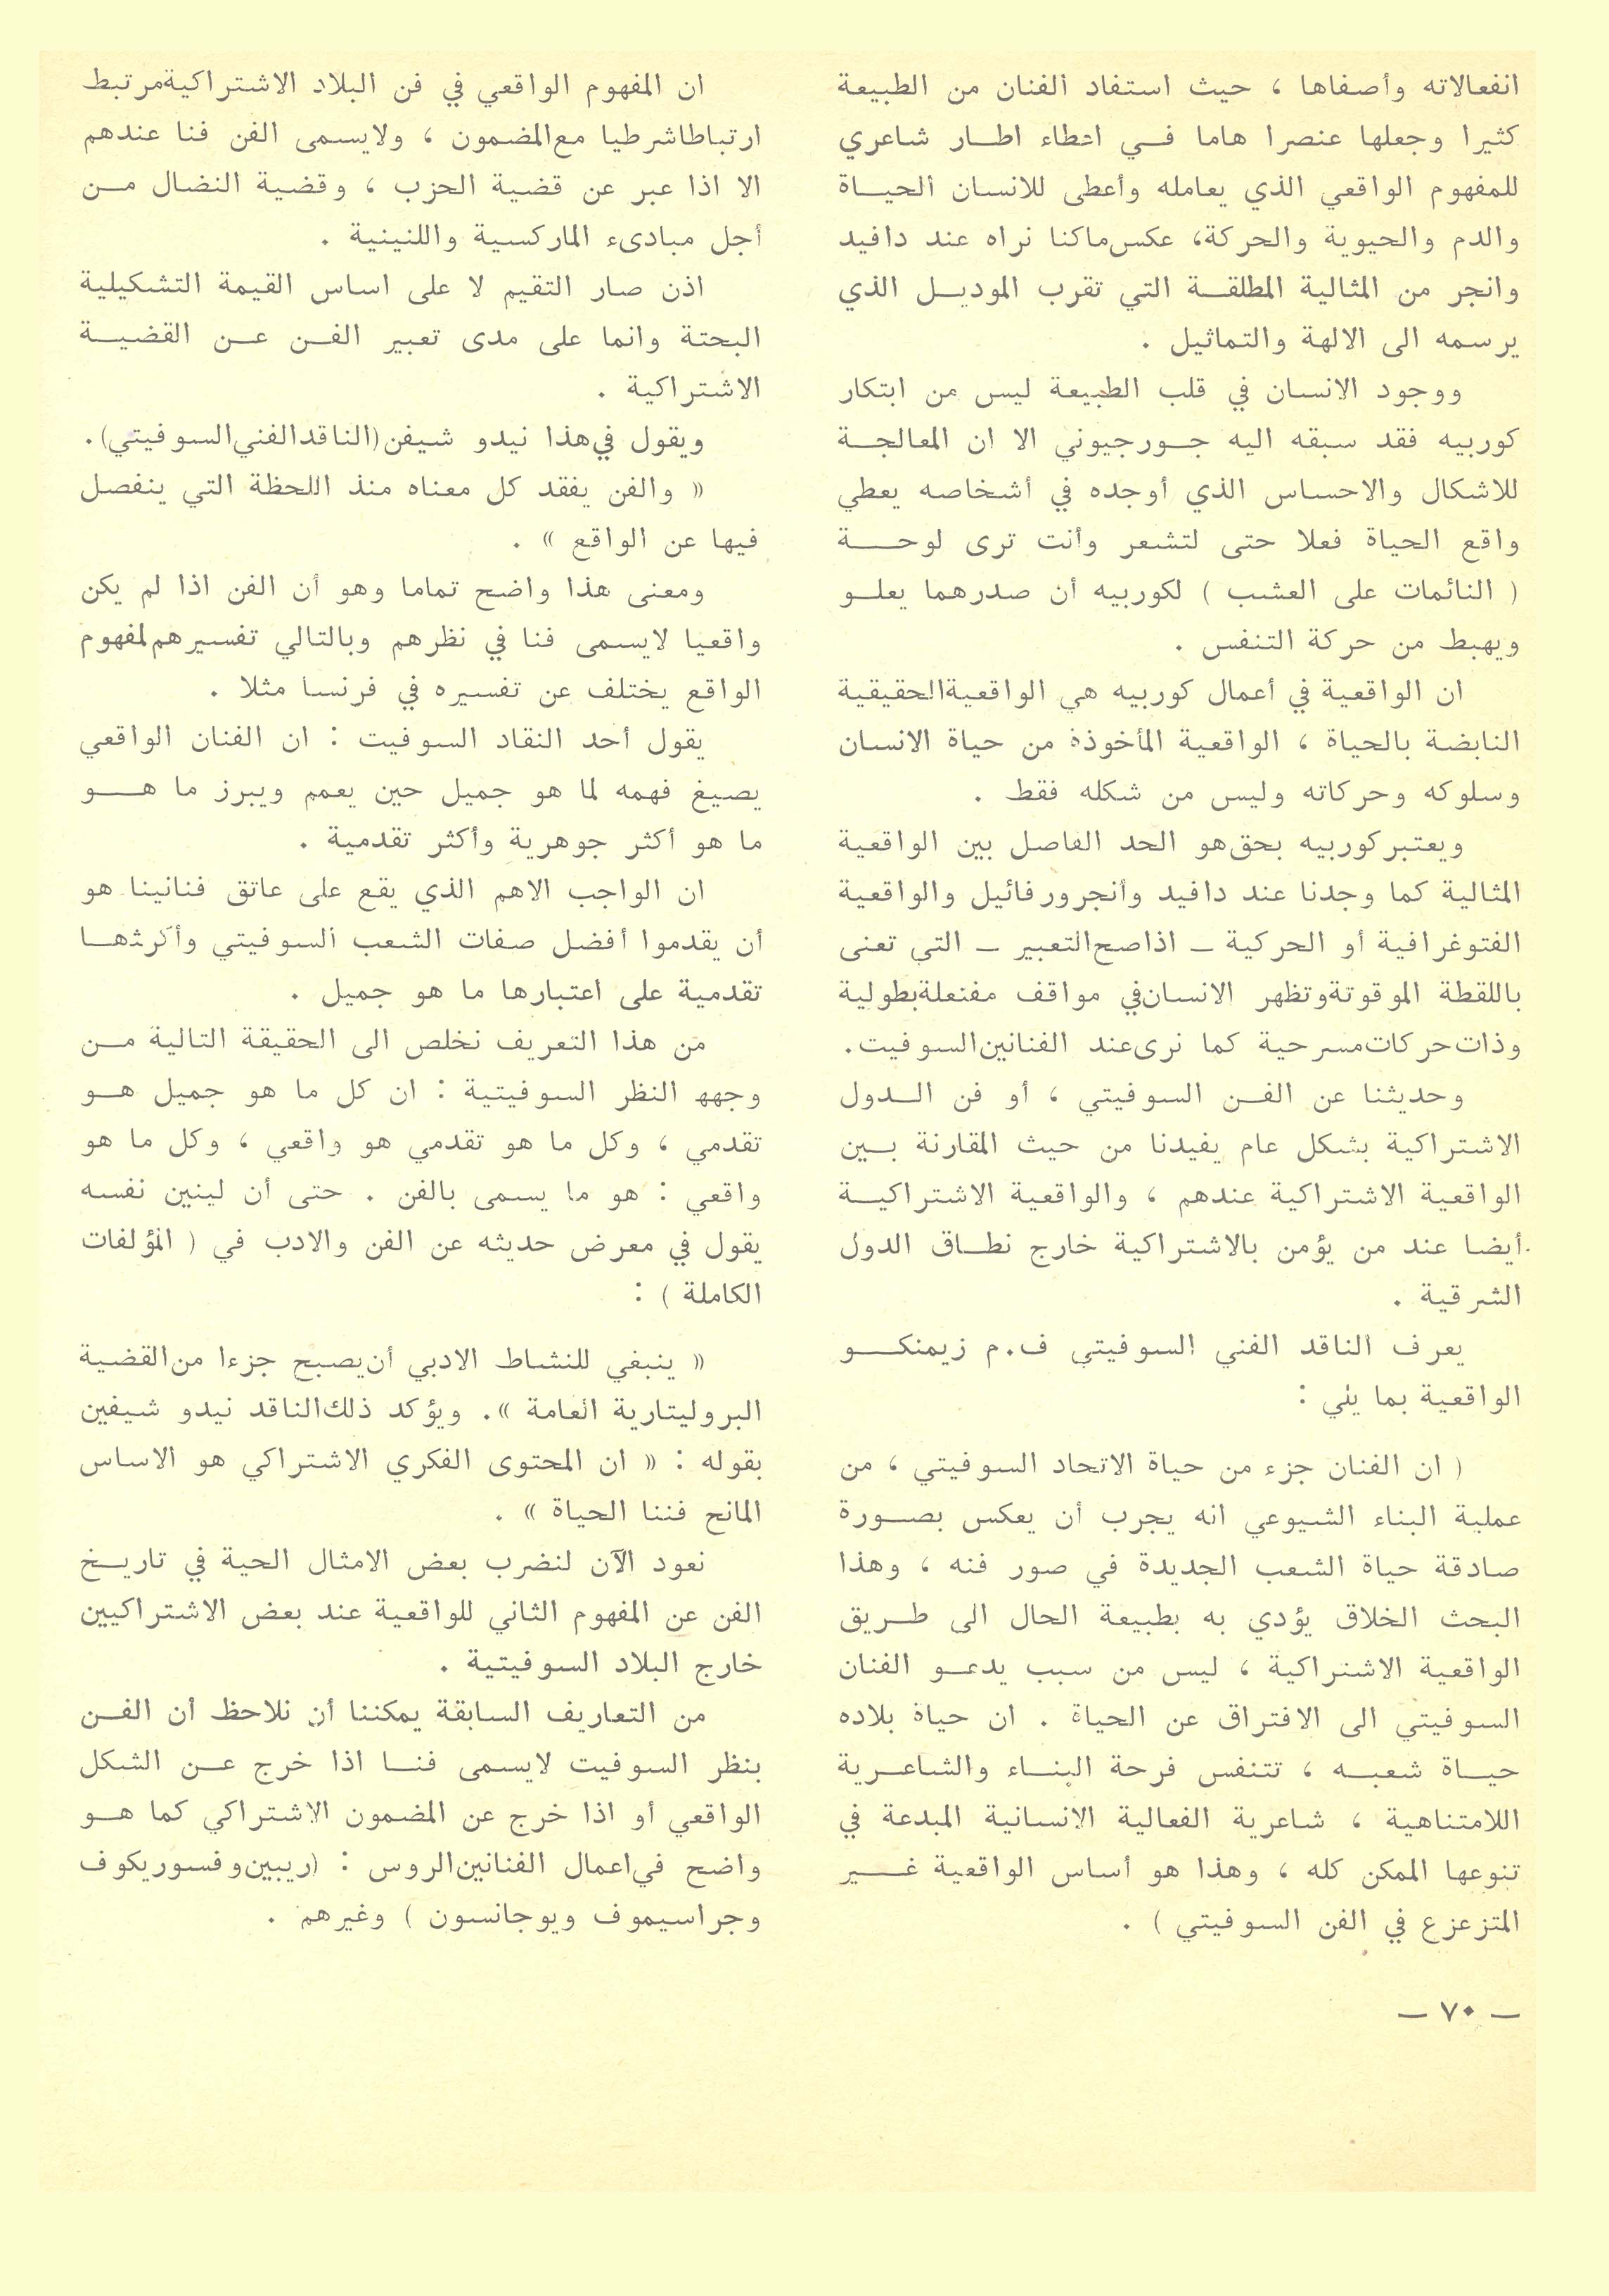 انفعالاته وأصفاها ، حيث استفاد الفنان من الطبيعة
كثيرا وجعلها عنصرا هاما في اعطاء اطار شاعري
للمفهوم الواقعي الذي يعامله وأعطى للانسان الحياة
والدم والحيوية والحركة، عكس ماكنا نراه عند دافيد
وانجر من المثالية المطلقة التي تقرب الموديل الذي
يرسمه الى الالهة والتماثيل .
ووجود الانسان في قلب الطبيعة ليس من ابتكار
كوربيه فقد سبقه اليه جورجيوني الا ان المعالجة
للاشكال والاحساس الذي أوجده في أشخاصه يعطي
واقع الحياة فعلا حتى لتشعر وأنت ترى لوحة
( النائمات على العشب ) لكوربيه أن صدرهما يعلو
ويهبط من حركة التنفس .
ان الواقعية في أعمال كوربيه هي الواقعية الحقيقية
النابضة بالحياة ، الواقعية المأخوذة من حياة الانسان
وسلوكه وحركاته وليس من شكله فقط .
ويعتبر كوربيه بحق هو الحد الفاصل بين الواقعية
المثالية كما وجدنا عند دافيد وأنجر ورفائيل والواقعية
الفتوغرافية أو الحركية ـ اذا صح التعبير ـ التي تعنى
باللقطة الموقوتة وتظهر الانسان في مواقف مفتعلة بطولية
وذات حركات مسرحية كما نرى عند الفنانين السوفيت.
وحديثنا عن الفن السوفيتي ، أو فن الدول
الاشتراكية بشكل عام يفيدنا من حيث المقارنة بين
الواقعية الاشتراكية عندهم ، والواقعية الاشتراكية
أيضا عند من يؤمن بالاشتراكية خارج نطاق الدول
الشرقية .
يعرف الناقد الفني السوفيتي ف.م زيمنكو
الواقعية بما يلي :
( ان الفنان جزء من حياة الاتحاد السوفيتي ، من
عملية البناء الشيوعي انه يجرب أن يعكس بصورة
صادقة حياة الشعب الجديدة في صور فنه ، وهذا
البحث الخلاق يؤدي به بطبيعة الحال الى طريق
الواقعية الاشتراكية ، ليس من سبب يدعو الفنان
السوفيتي الى الافتراق عن الحياة . ان حياة بلاده
حياة شعبه ، تتنفس فرحة البناء والشاعرية
اللامتناهية ، شاعرية الفعالية الانسانية المبدعة في
تنوعها الممكن كله ، وهذا هو أساس الواقعية غير
المتزعزع في الفن السوفيتي ) .
ان المفهوم الواقعي في فن البلاد الاشتراكية مرتبط
ارتباطا شرطيا مع المضمون ، ولايسمى الفن فنا عندهم
الا اذا عبر عن قضية الحزب ، وقضية النضال من
أجل مبادىء الماركسية واللنينية .
اذن صار التقيم لا على اساس القيمة التشكيلية
البحتة وانما على مدى تعبير الفن عن القضية
الاشتراكية .
ويقول في هذا نيدو شيفن (الناقد الفني السوفيتي).
« والفن يفقد كل معناه منذ اللحظة التي ينفصل
فيها عن الواقع » .
ومعنى هذا واضح تماما وهو أن الفن اذا لم يكن
واقعيا لايسمى فنا في نظرهم وبالتالي تفسيرهم لمفهوم
الواقع يختلف عن تفسيره في فرنسا مثلا .
يقول أحد النقاد السوفيت : ان الفنان الواقعي
يصيغ فهمه لما هو جميل حين يعمم ويبرز ما هو
ما هو أكثر جوهرية وأكثر تقدمية .
ان الواجب الاهم الذي يقع على عاتق فنانينا هو
أن يقدموا أفضل صفات الشعب السوفيتي وأكرثها
تقدمية على اعتبارها ما هو جميل .
من هذا التعريف نخلص الى الحقيقة التالية من
وجهه النظر السوفيتية : ان كل ما هو جميل هو
تقدمي ، وكل ما هو تقدمي هو واقعي ، وكل ما هو
واقعي : هو ما يسمى بالفن . حتى أن لينين نفسه
يقول في معرض حديثه عن الفن والادب في ( المؤلفات
الكاملة ) :
« ينبغي للنشاط الادبي أن يصبح جزءا من القضية
البروليتارية العامة ». ويؤكد ذلك الناقد نيدو شيفين
بقوله : « ان المحتوى الفكري الاشتراكي هو الاساس
المانح فننا الحياة » .
نعود الآن لنضرب بعض الامثال الحية في تاريخ
الفن عن المفهوم الثاني للواقعية عند بعض الاشتراكيين
خارج البلاد السوفيتية .
من التعاريف السابقة يمكننا أن نلاحظ أن الفن
بنظر السوفيت لايسمى فنا اذا خرج عن الشكل
الواقعي أو اذا خرج عن المضمون الاشتراكي كما هو
واضح في اعمال الفنانين الروس : (ريبين وفسوريكوف
وجراسيموف ويوجانسون ) وغيرهم .
ـ ٧٠ ـ